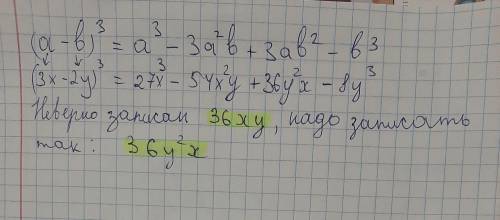 (a - b)³ = a³ - 3a²b + 3ab² - b³
(3x - 2y)³ = 27x³ - 54x²y + 36y²x - 8y³
Неверно записан 36xy, надо записать
так: 36y²x